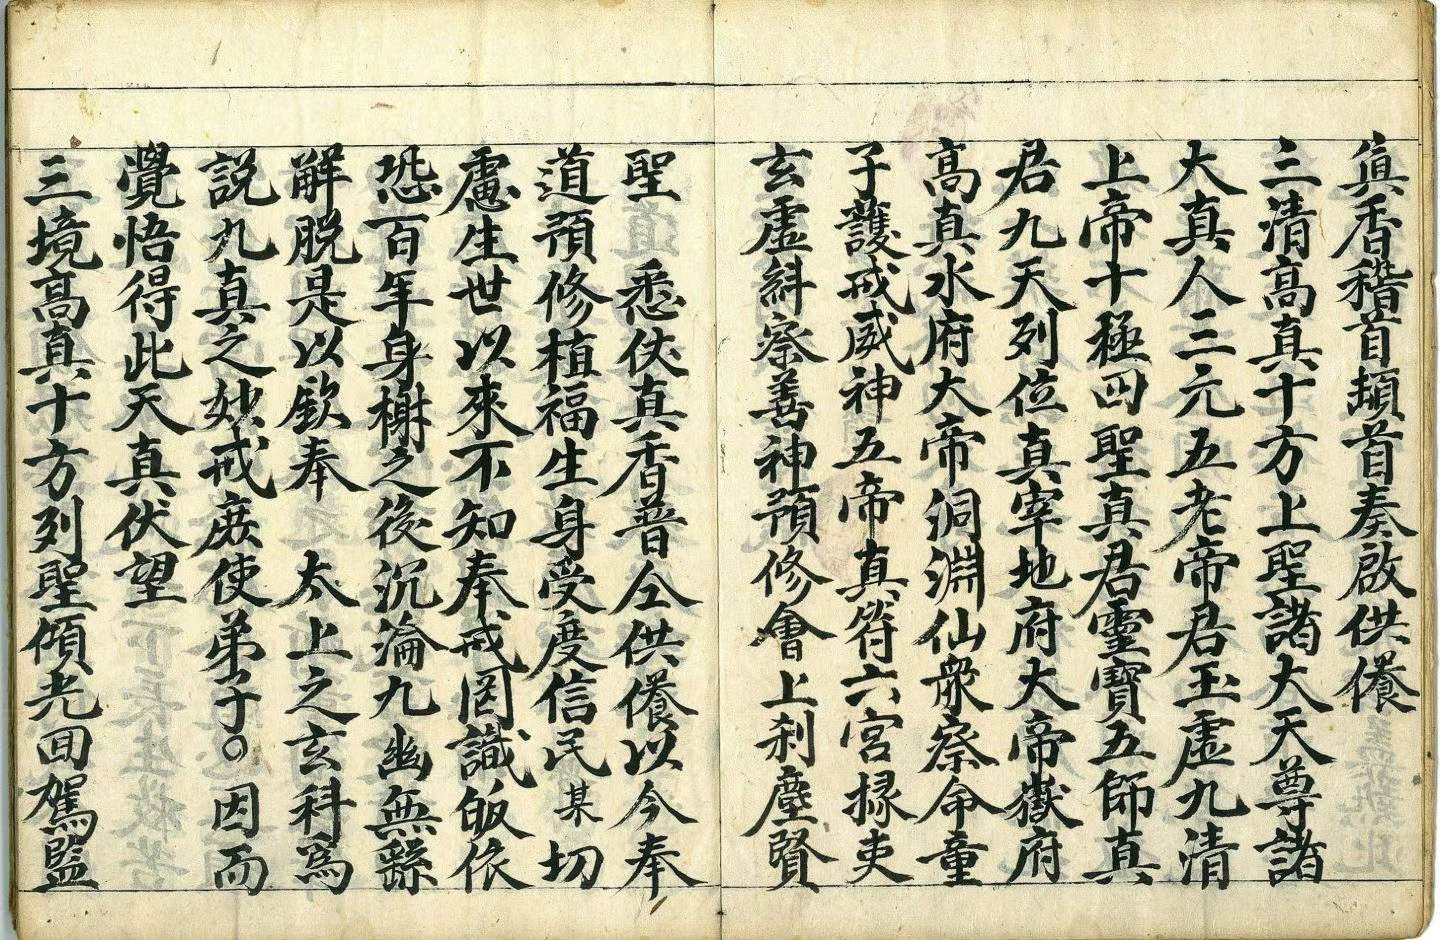 真香稽首頓首奏啟供養
三清高真十方上聖諸大天尊諸
大真人三元五老帝君玉虛九清
上帝十極四聖真君靈寶五師真
君九天列位真宰地府大帝嶽府
高真水府大帝洞淵仙眾察命童
子護戒威神五帝真符六宮掾吏
玄虛糾察善神預修會上刹塵賢
聖　悉伏真香普仝供養以今奉
道預修植福生身受度信民某切
慮生世以來不知奉戒罔識皈依
恐百年身榭之後沉淪九幽無繇
解脫是以欽奉　太上之玄科為
說九真之妙戒庶使弟子○因而
覺悟得此天真伏望
三境高真十方列聖傾光回駕監